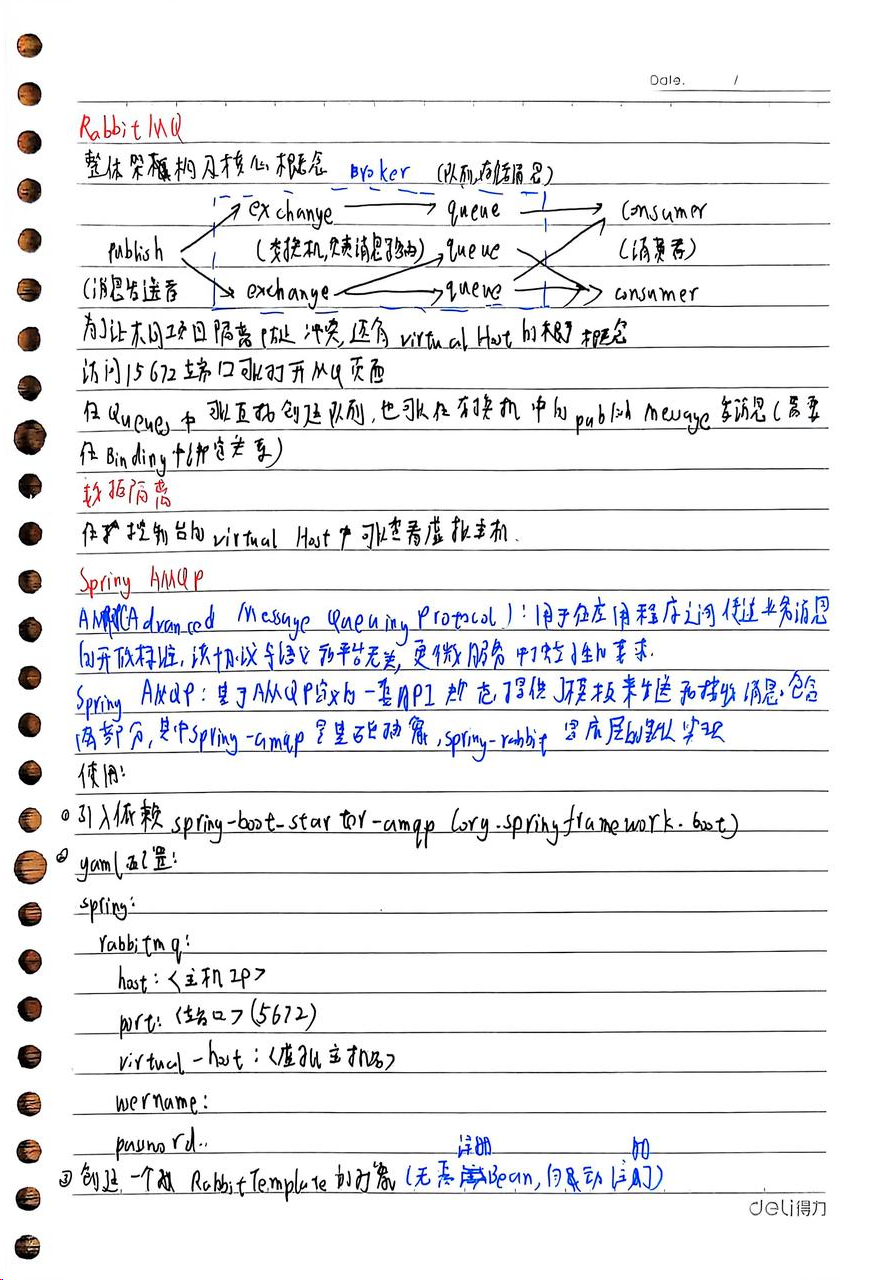 Date. /
RabbitMQ
整体架构及核心概念 Broker (队列,存储消息)
exchange queue consumer
publish (交换机,负责消息路由) queue (消费者)
(消息发送者 exchange queue consumer
为了让不同项目隔离 冲突,还有virtual Host的概念
访问15672端口可以打开MQ页面
在Queues中可以直接创建队列,也可以在交换机中的publish message 发消息(需要
在Binding中绑定关系)
数据隔离
在控制台的virtual Host中可以查看虚拟主机.
Spring AMQP
(Advanced Message Queuing Protocol):用于在应用程序之间传递业务消息
的开放标准,该协议与语言和平台无关,更 微服务中独立性的要求.
Spring AMQP:基于AMQP定义的一套API规范提供了模板来发送和接收消息.包含
两部分,其中spring-amqp是基础抽象,spring-rabbit是底层的默认实现
使用:
①引入依赖 spring-boot-starter-amqp (org.springframework.boot)
② yaml配置:
spring:
rabbitmq:
host:<主机IP>
port:<端口>(5672)
virtual-host:<虚拟主机名>
username:
password:
③创建一个 RabbitTemplate的对象(无需注册Bean,自动注入的)
deli得力